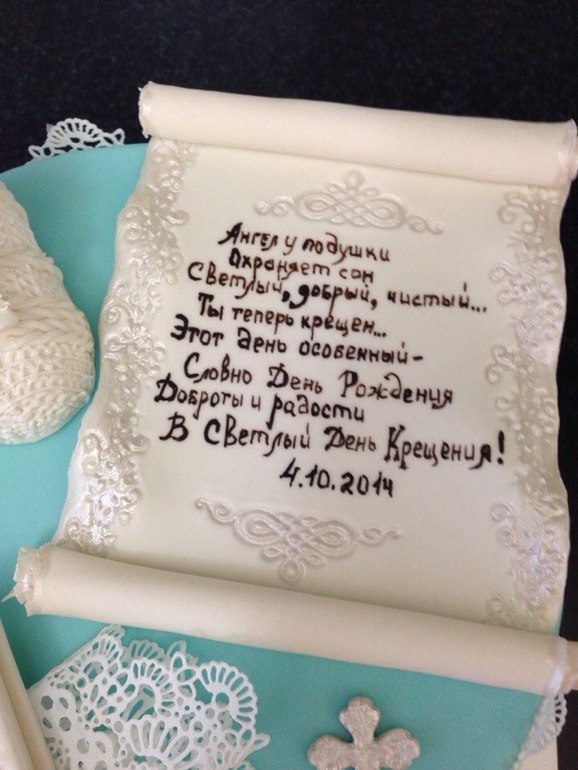 Ангел у подушки
Охраняет сон
Светлый, добрый, чистый...
Ты теперь крещен...
Этот день особенный-
Словно День Рождения
Доброты и радости
В Светлый День Крещения!
4.10.2014